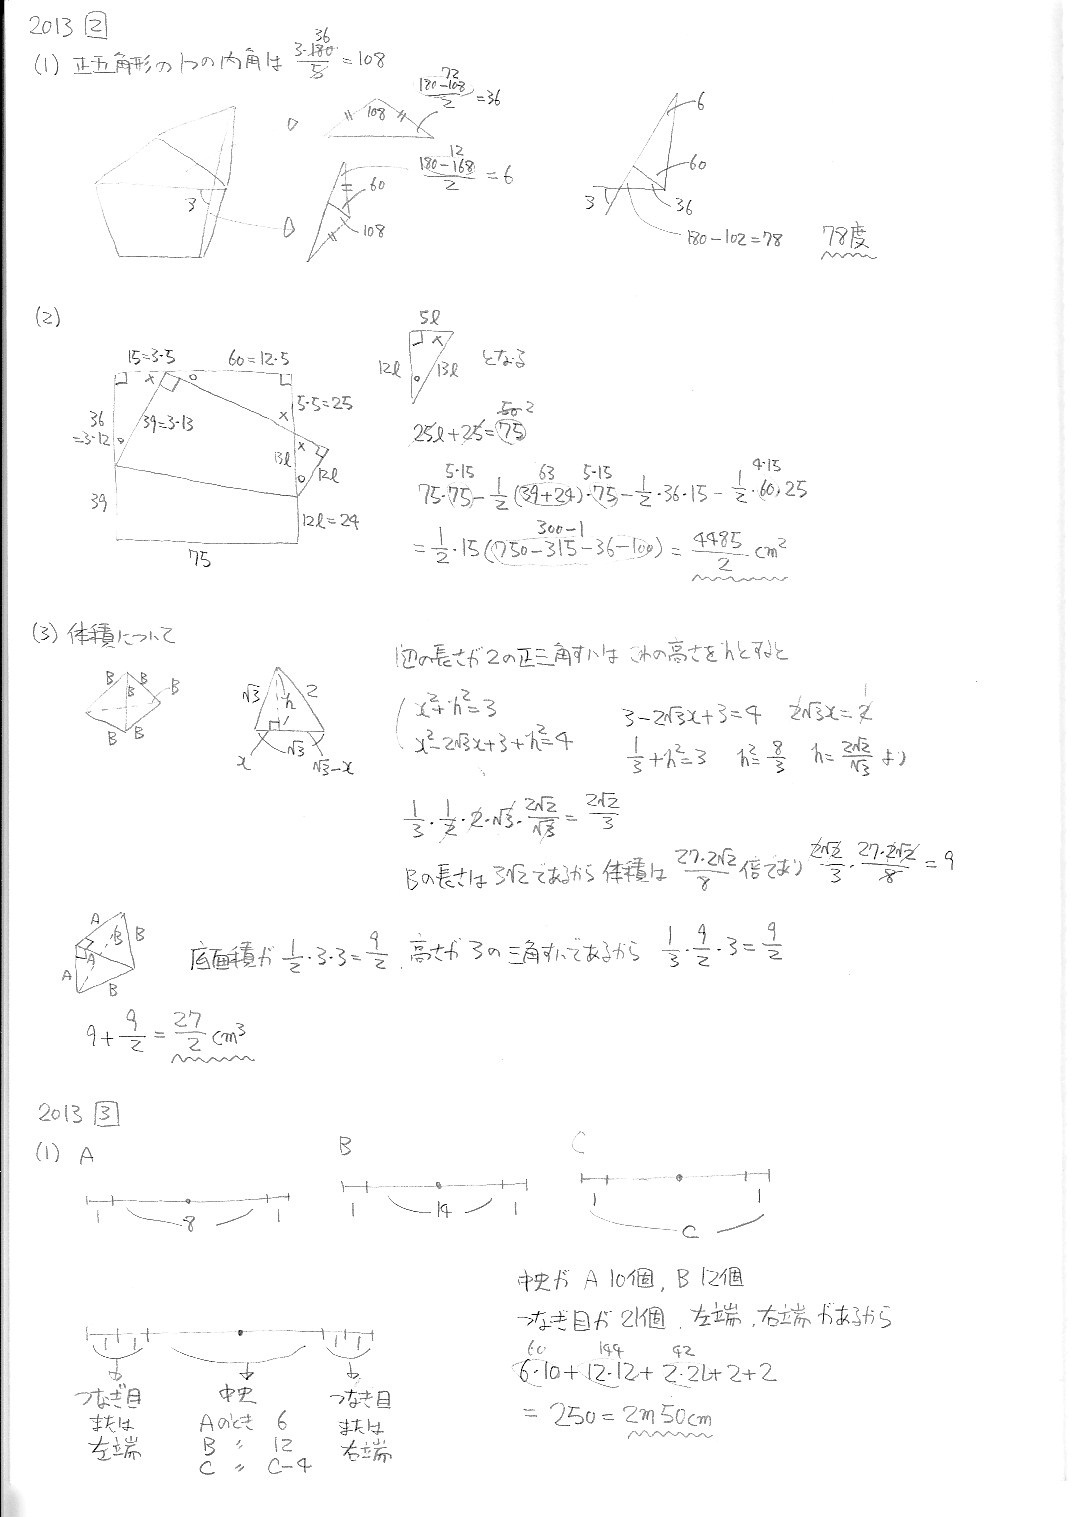 2013 [2]
(1) 正五角形の1つの内角は 3·180/5 = 108
36
108
180-108/2 = 36
72
180-168/2 = 6
12
60
108
3
6
60
36
3
180-102=78
78度
(2)
15=3·5
60=12·5
36
=3·12
39=3·13
5·5=25
13ℓ
12ℓ
39
12ℓ=24
75
×
○
5ℓ
12ℓ
13ℓ
となる
25ℓ+25=75
50 2
75·75-1/2(39+24)·75-1/2·36·15-1/2·60·25
5·15 63 5·15 4·15
=1/2·15(750-315-36-100)=4485/2 cm²
300-1
(3) 体積について
B B B B B B
√3 h 2
x √3 √3-x
1辺の長さが2の正三角すいは これの高さをhとすると
x²+h²=3
x²-2√3x+3+h²=4
3-2√3x+3=4 2√3x=2
1
1/3+h²=3 h²=8/3 h=2√2/√3 より
1/3·1/2·2·√3·2√2/√3=2√2/3
Bの長さは3√2であるから 体積は 27·2√2/8 倍であり 2√2/3·27·2√2/8=9
A B B A A B
底面積が 1/2·3·3=9/2、高さが3の三角すいであるから 1/3·9/2·3=9/2
9+9/2=27/2 cm³
2013 [3]
(1) A
B
C
1 8 1
1 14 1
1 C 1
1 1 1 1
つなぎ目
または
左端
中央
Aのとき 6
B 〃 12
C 〃 C-4
つなぎ目
または
右端
中央が A 10個, B 12個
つなぎ目が 21個、左端、右端があるから
60 144 42
6·10+12·12+2·21+2+2
=250=2m50cm